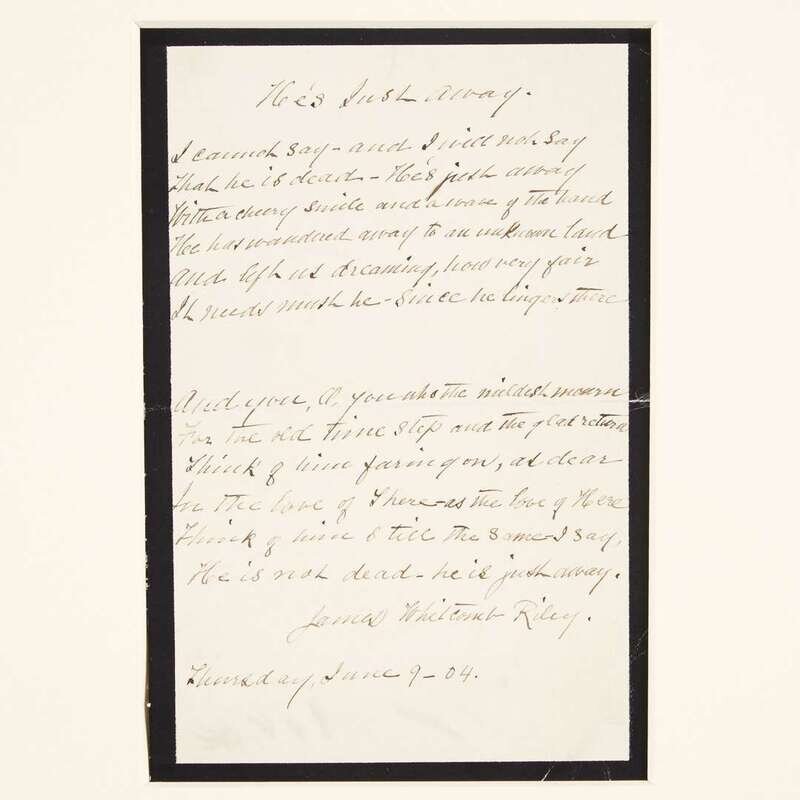 He's Just Away.
I cannot say - and I will not say
That he is dead - He's just away
With a cheery smile and a wave of the hand
He has wandered away to an unknown land
And left us dreaming, how very fair
It needs must be - since he lingers there
And you, O, you who the wildest mourn
For the old time step and the glad return
Think of him faring on, as dear
In the love of There - as the love of Here
Think of him still the same - I say,
He is not dead - he is just away.
James Whitcomb Riley.
Thursday, June 9 - 04.